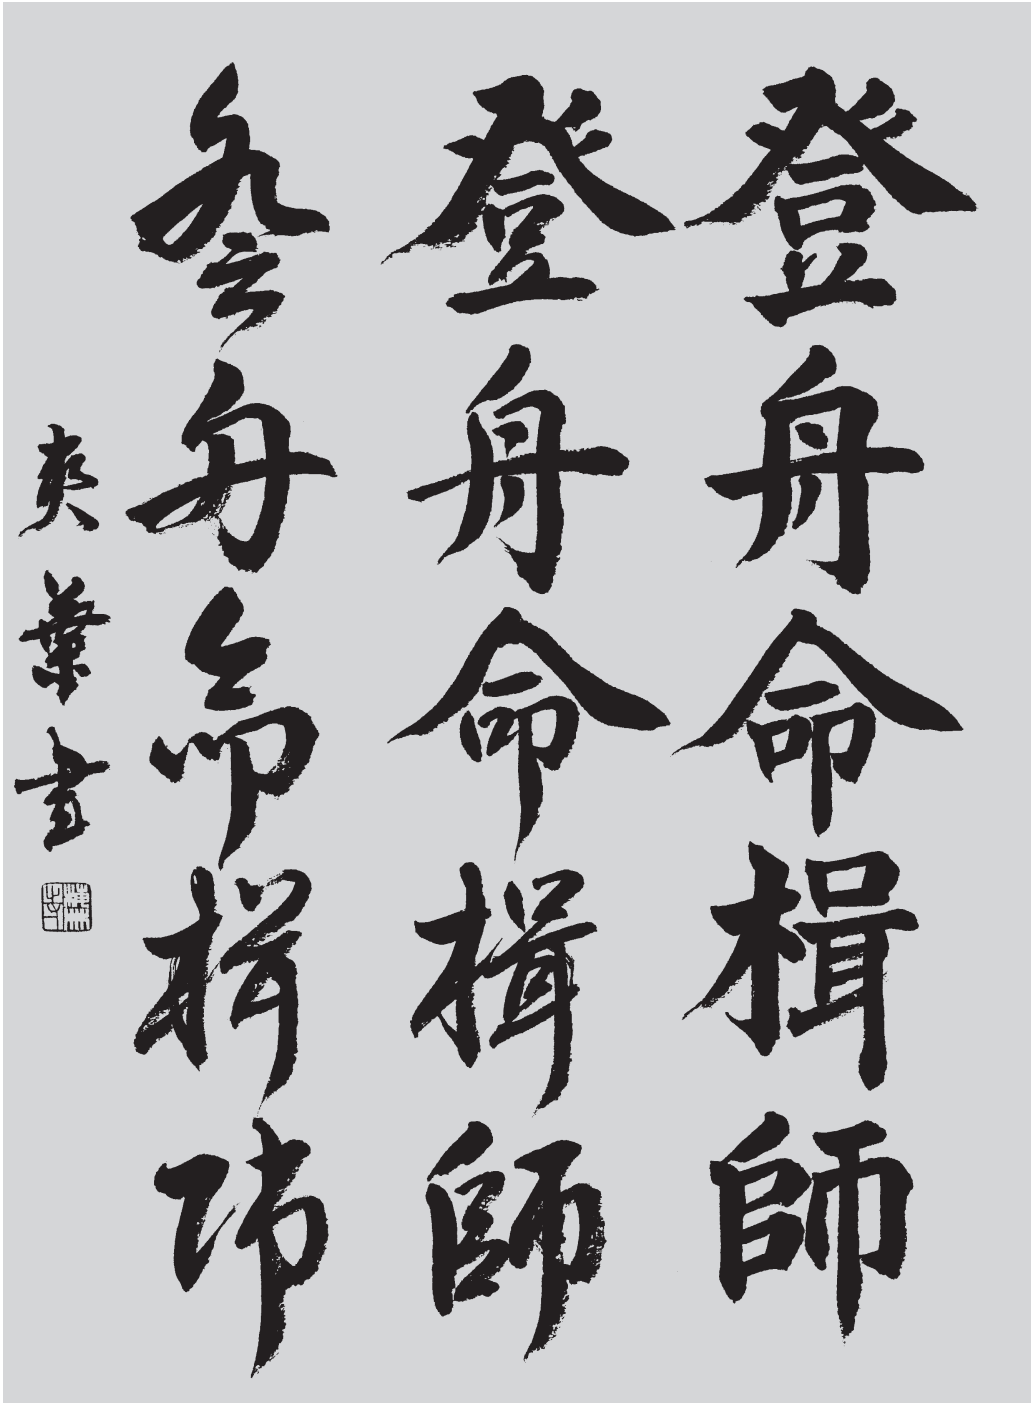 登舟命楫師
登舟命楫師
登舟命楫師
爽葉書